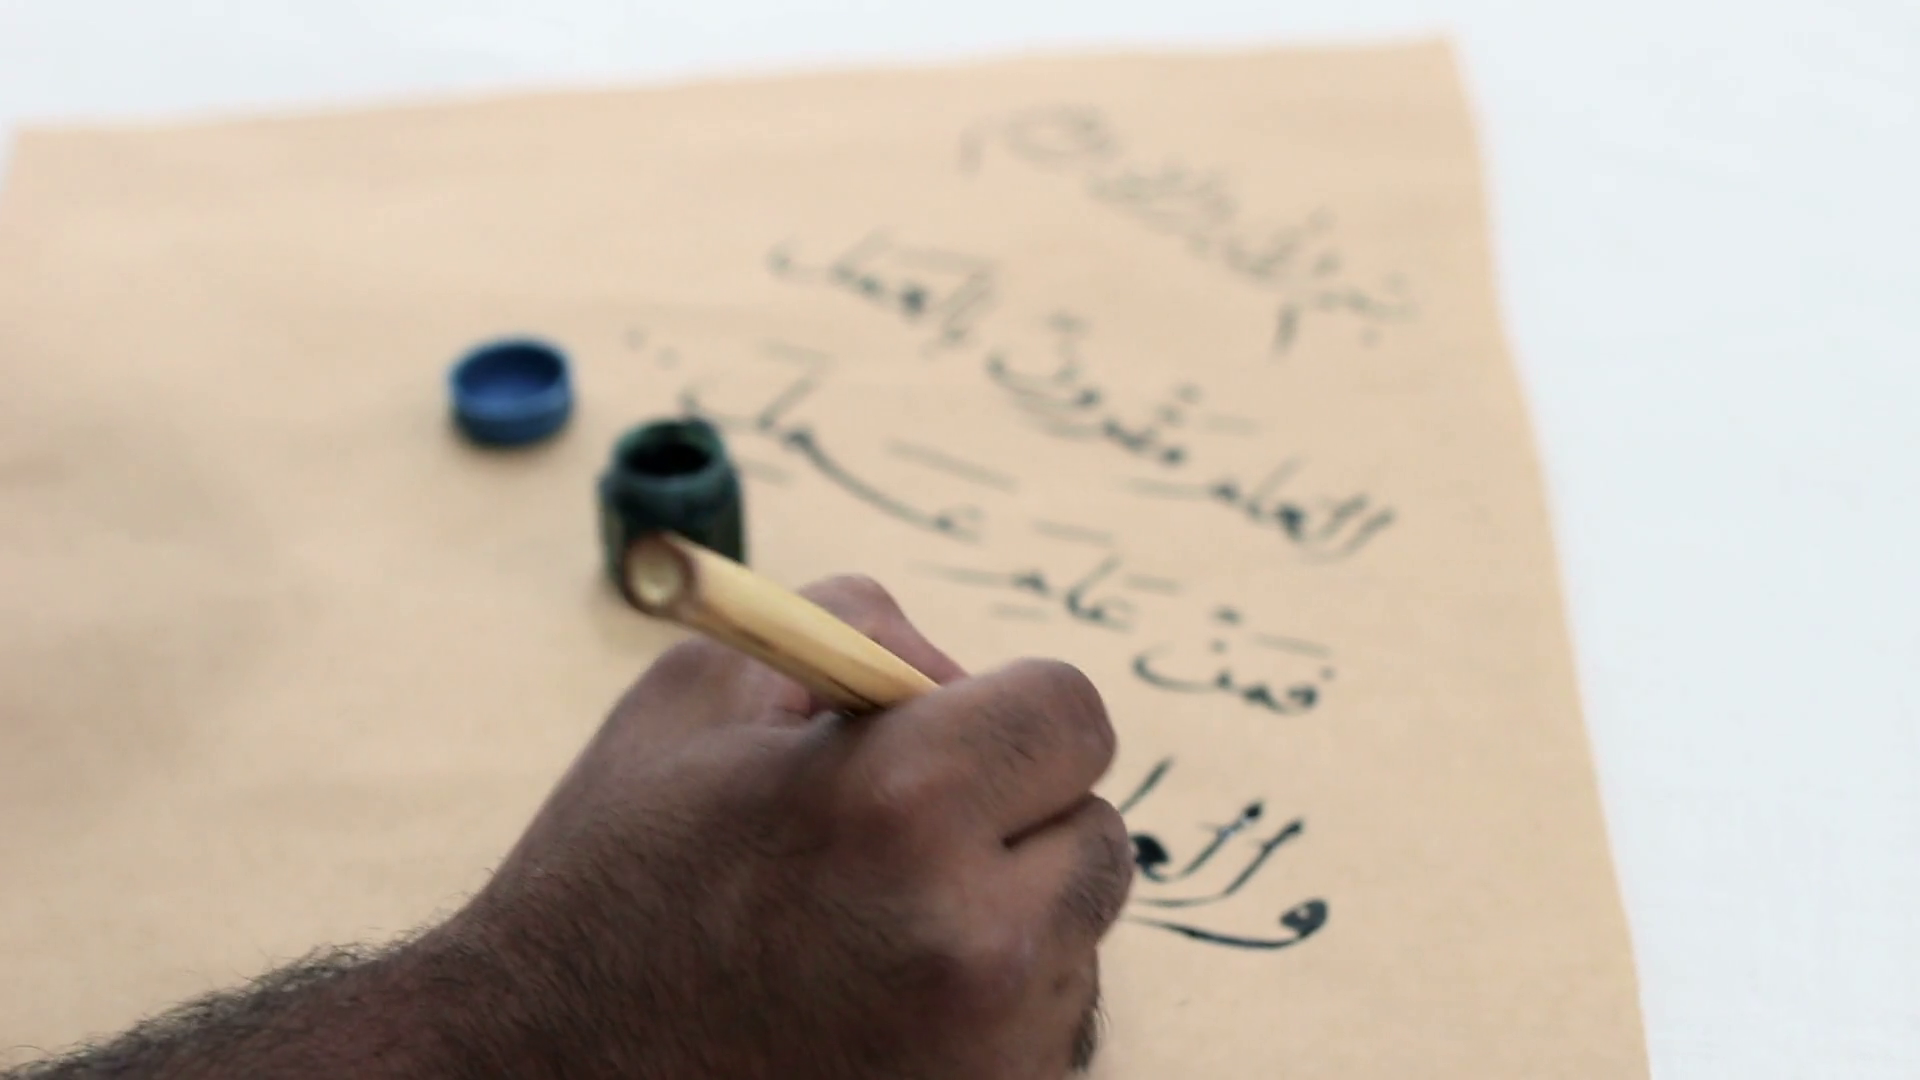 بسم الله الرحمن الرحيم
العلم مقرونٌ بالعمل
فمَنْ عَلِمَ عَمِلَ..
والعلـ